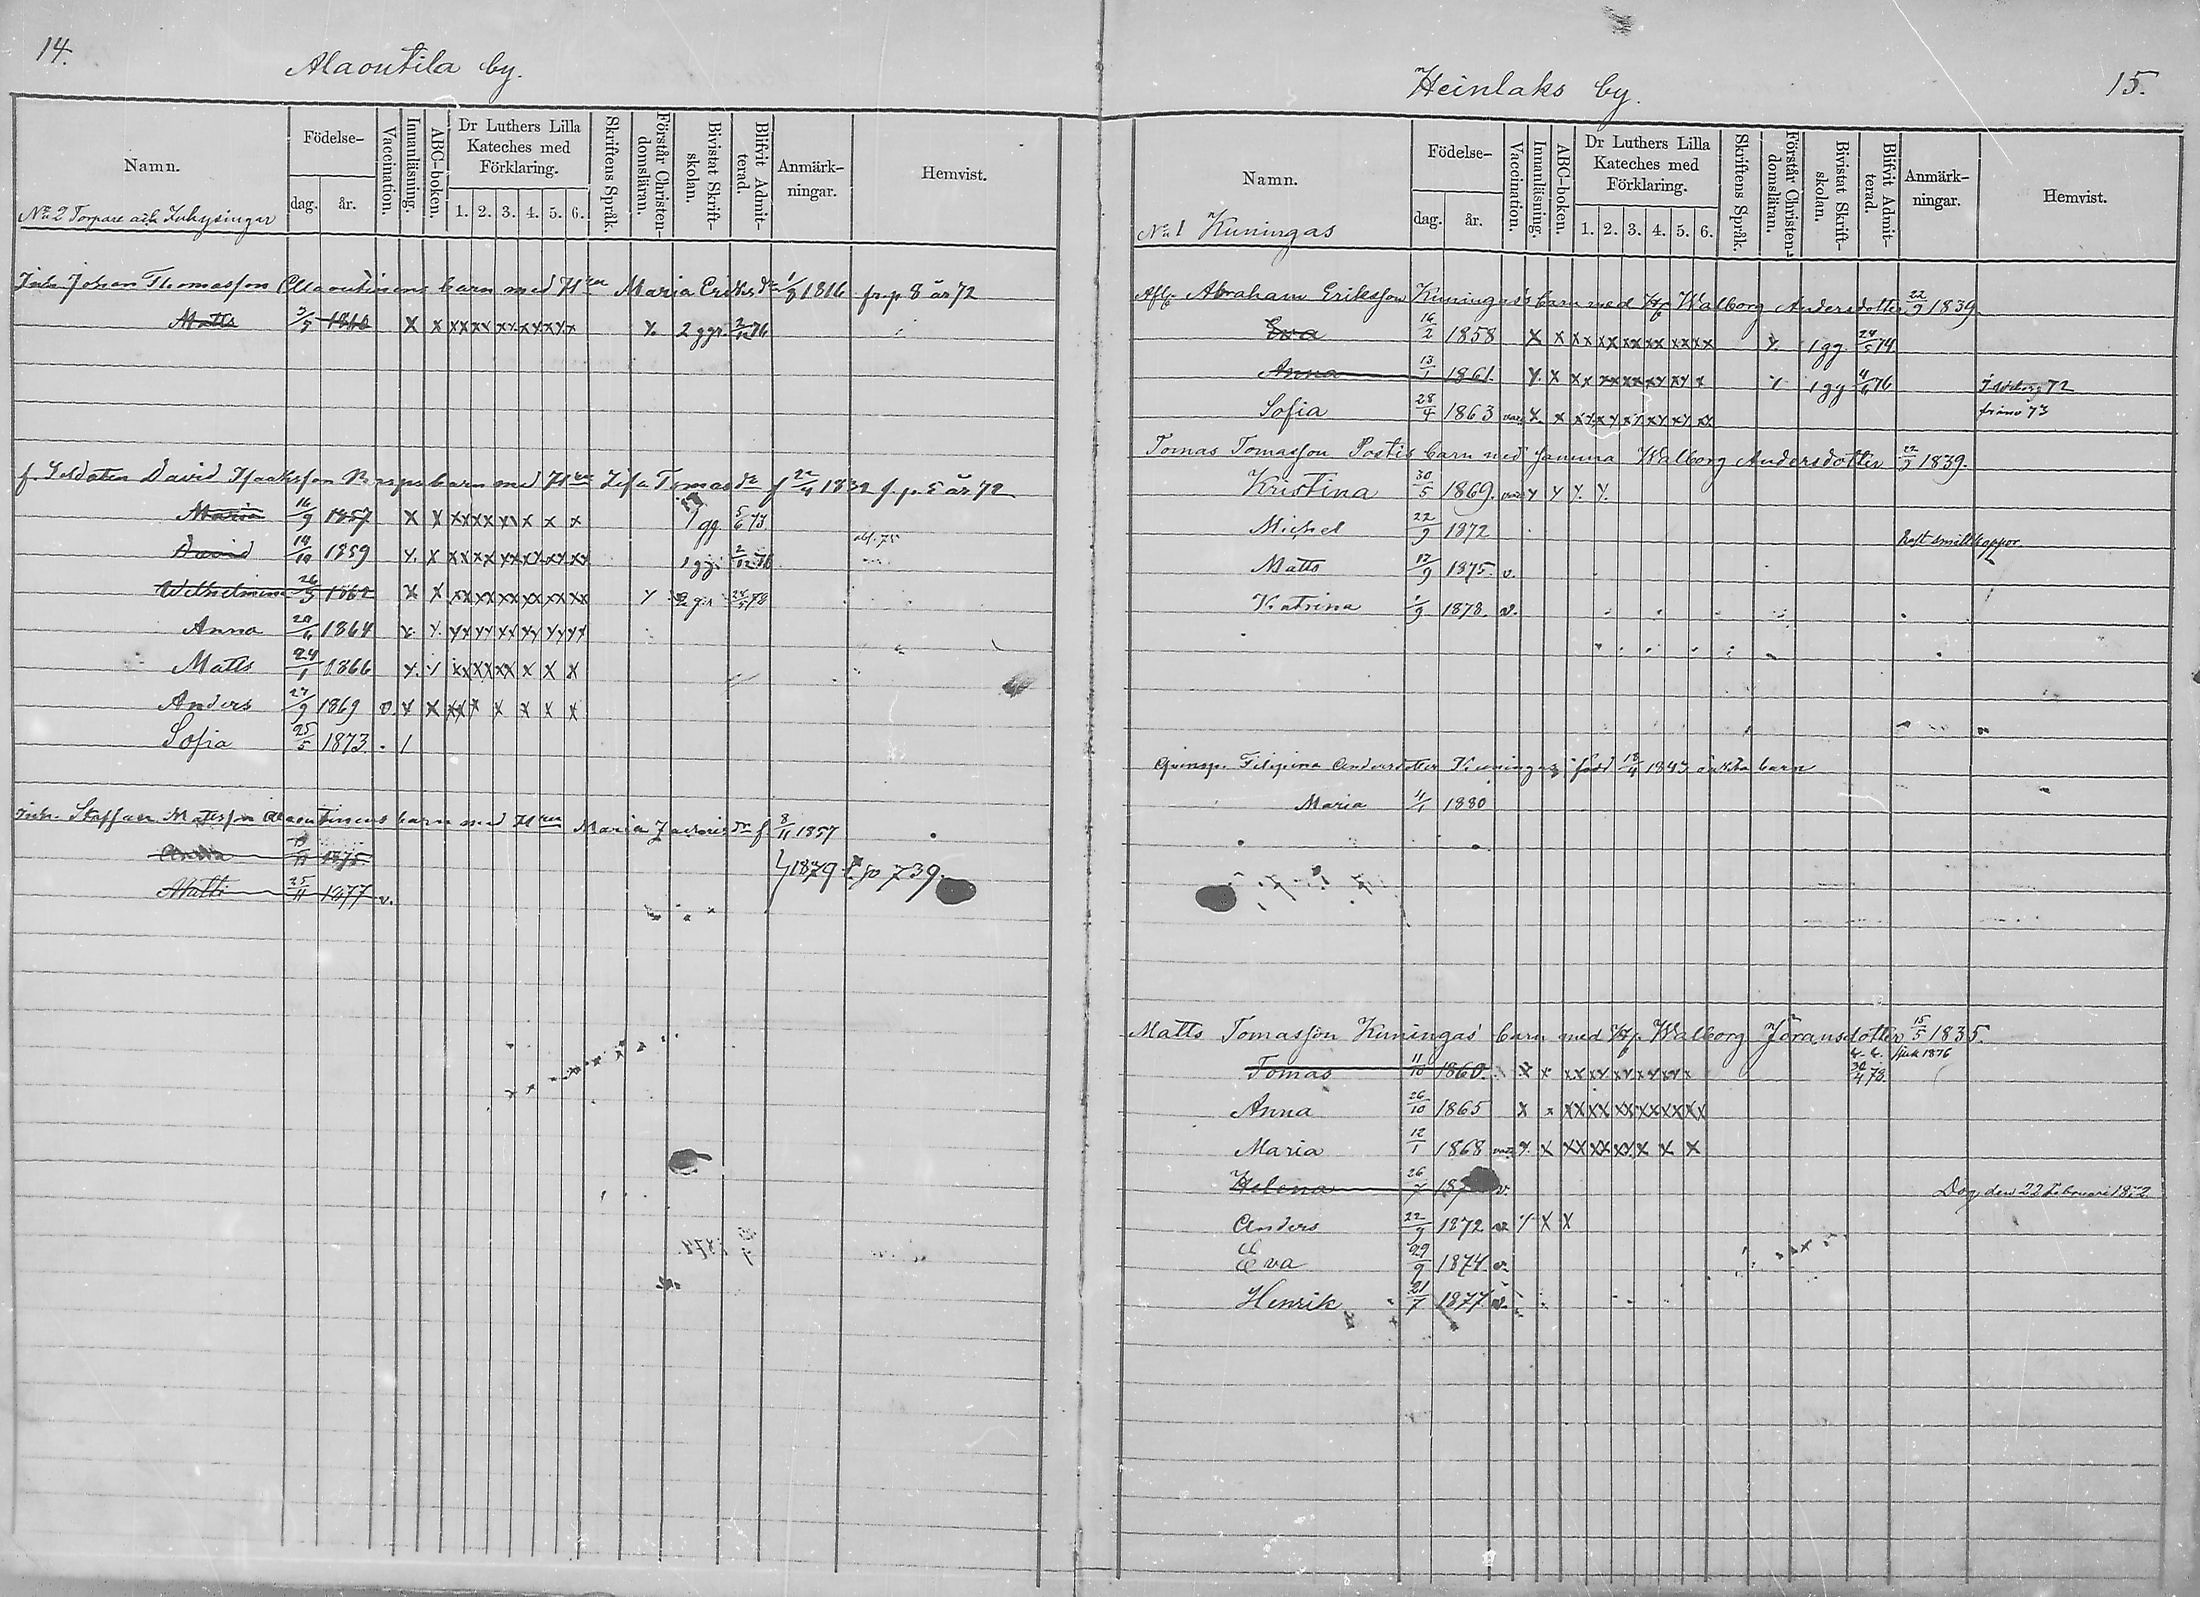 14.
Alaoutila by.
Namn.
Födelse-
dag.
år.
Vaccination.
Innanläsning.
ABC-boken.
Dr Luthers Lilla
Kateches med
Förklaring.
1. 2. 3. 4. 5. 6.
Skriftens Språk.
Förstår Christen-
domsläran.
Bivistat Skrift-
skolan.
Blifvit Admit-
terad.
Anmärk-
ningar.
Hemvist.
No 2 Torpare och Inhysingar
Inh. Johan Thomasson Alaoutinens barn med H:un Maria Eriks dr 1816 fr. p. 8 år 72
Matts 3/5 1860 x x xx xx xx xx xx x x 2 ggr 76
f. Soldaten David Isaaksson barn med H:un Lisa Tomas dr f 22/4 1832 f. p. 5 år 72
Maria 16/9 1857 x x xx xx xx x x x 1 gg 5/6 73
David 14/10 1859 x x xx xx xx xx xx xx 1 gg 76 abs. 75
Wilhelmina 26/5 1862 x x xx xx xx xx xx xx x 2 ggr 78
Anna 20/6 1864 x x xx xx xx xx xx xx
Matts 24/1 1866 x x xx xx xx x x x
Anders 27/9 1869 v. x x xx x x x x x
Sofia 25/5 1873 /
Inh. Staffan Mattsson Alaoutinens barn med H:un Maria Zakaris dr f 8/11 1857
1875
1879 739
Matts 25/11 1877 v.
15.
Heinlaks by.
Namn.
Födelse-
dag.
år.
Vaccination.
Innanläsning.
ABC-boken.
Dr Luthers Lilla
Kateches med
Förklaring.
1. 2. 3. 4. 5. 6.
Skriftens Språk.
Förstår Christen-
domsläran.
Bivistat Skrift-
skolan.
Blifvit Admit-
terad.
Anmärk-
ningar.
Hemvist.
No 1 Kuningas
Afl. Abraham Eriksson Kuningas's barn med H. Walborg Andersdotter 22/9 1839.
Eva 16/2 1858 x x xx xx xx xx xx xx x 1 gg 24/5 74
Anna 13/1 1861 x x xx xx xx xx xx x x 1 gg 4/6 76 72
Sofia 28/4 1863 vac x x xx xx xx xx xx xx 73
Tomas Tomasson Postis barn med samma Walborg Andersdotter 22/9 1839.
Kristina 30/5 1869. vac x x x x
Michel 22/9 1872 haft smittkoppor
Matts 17/9 1875 v.
Katrina 1/9 1878. v.
Qvinsp. Filipina Andersdotter Kuningas född 18/4 1843 oäkta barn
Maria 4/1 1880
Matts Tomasson Kuningas' barn med H. Walborg Göransdotter 15/5 1835.
Tomas 11/10 1860. x x xx xx xx xx xx x 30/4 78. sjuk 1876
Anna 26/10 1865 x x xx xx xx xx xx xx
Maria 12/1 1868 vac x x xx xx xx x x x
Helena 26/7 187 v. Dog den 22 Februari 1872
Anders 22/9 1872 v. x x x
Eva 29/9 1874 v.
Henrik 21/7 1877 v.